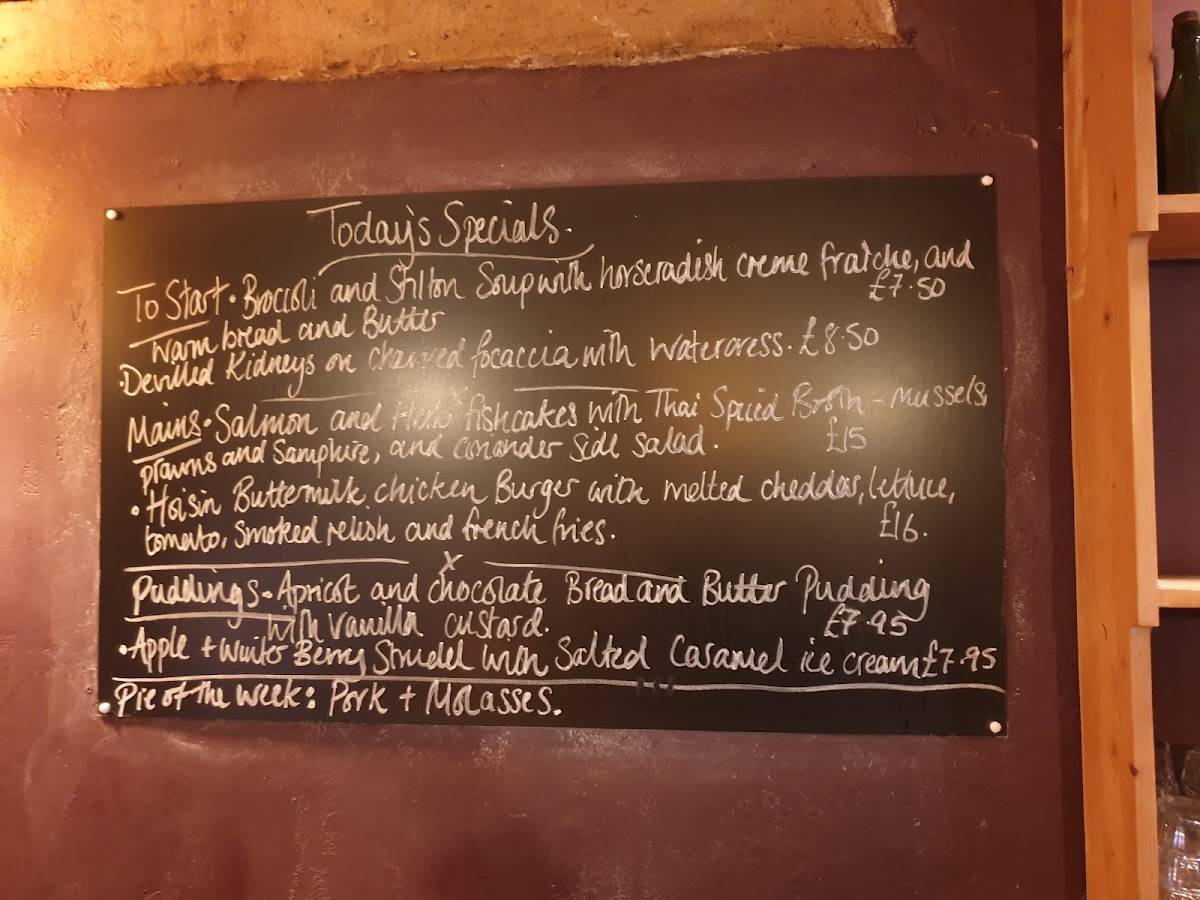 Today's Specials.
To Start • Broccoli and Stilton Soup with horseradish creme fraîche, and
warm bread and Butter £7.50
• Devilled Kidneys on charred focaccia with watercress. £8.50
Mains • Salmon and Herb fishcakes with Thai Spiced Broth - mussels,
prawns and samphire, and coriander side salad. £15
• Hoisin Buttermilk chicken Burger with melted cheddar, lettuce,
tomato, smoked relish and french fries. £16.
x
Puddings • Apricot and chocolate Bread and Butter Pudding
with vanilla custard. £7.95
• Apple + Winter Berry Strudel with Salted Caramel ice cream £7.95
Pie of the week: Pork + Molasses.